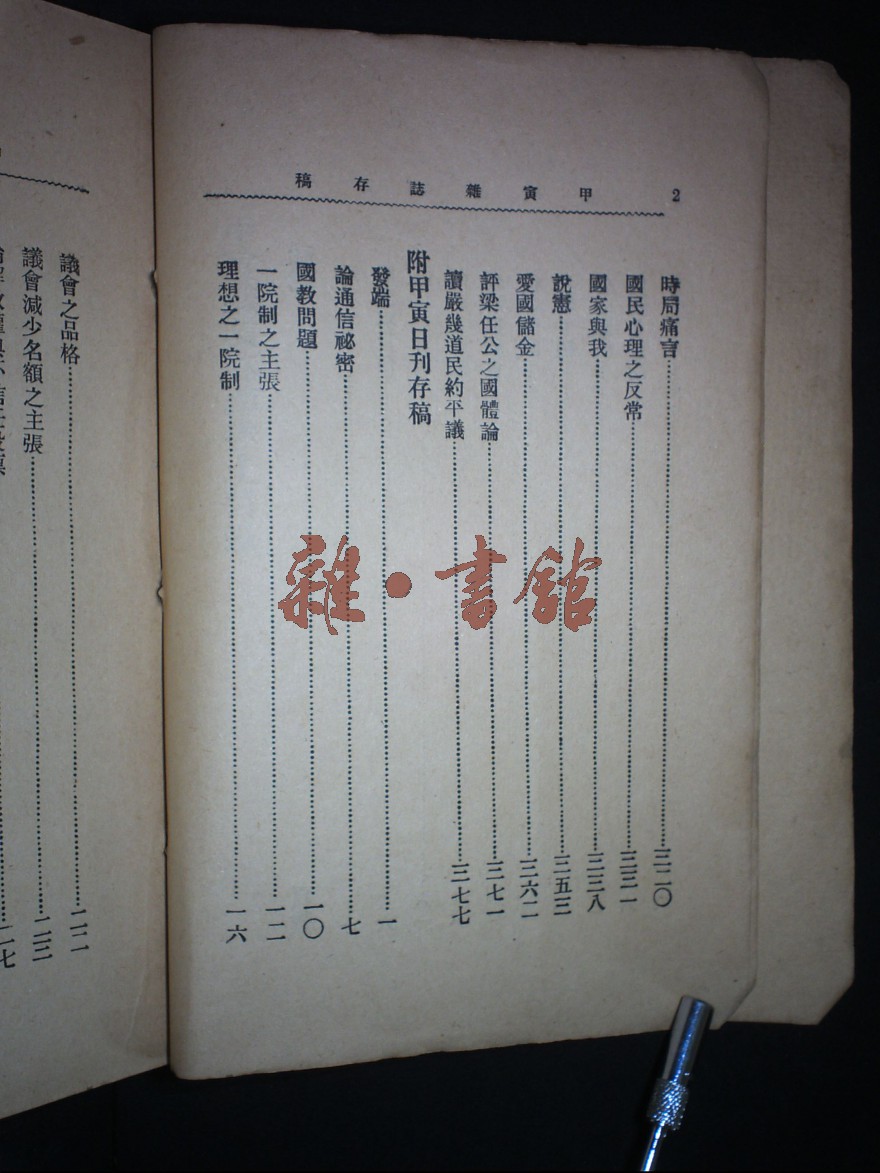 2
甲寅雜誌存稿
時局痛言……三二〇
國民心理之反常……三三一
國家與我……三三八
說憲……三五三
愛國儲金……三六二
評梁任公之國體論……三七一
讀嚴幾道民約平議……三七七
附甲寅日刊存稿
發端……一
論通信祕密……七
國教問題……一〇
一院制之主張……一二
理想之一院制……一六
議會之品格……二二
議會減少名額之主張……二三
二七
雜·書館